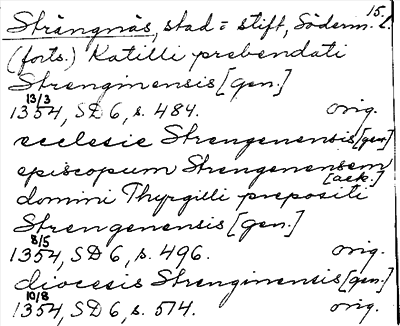 15.
Strängnäs, stad = stift, Söderm. l.
(forts.) Katilli prebendati
Strenginensis [gen.]
13/3
1354, SD 6, s. 484. orig.
ecclesie Strengenensis [gen]
episcopum Strengenensem
[ack.]
domini Thyrgilli prepositi
Strengenensis [gen.]
8/5
1354, SD 6, s. 496. orig.
diocesis Strenginensis [gen.]
10/8
1354, SD 6, s. 514. orig.